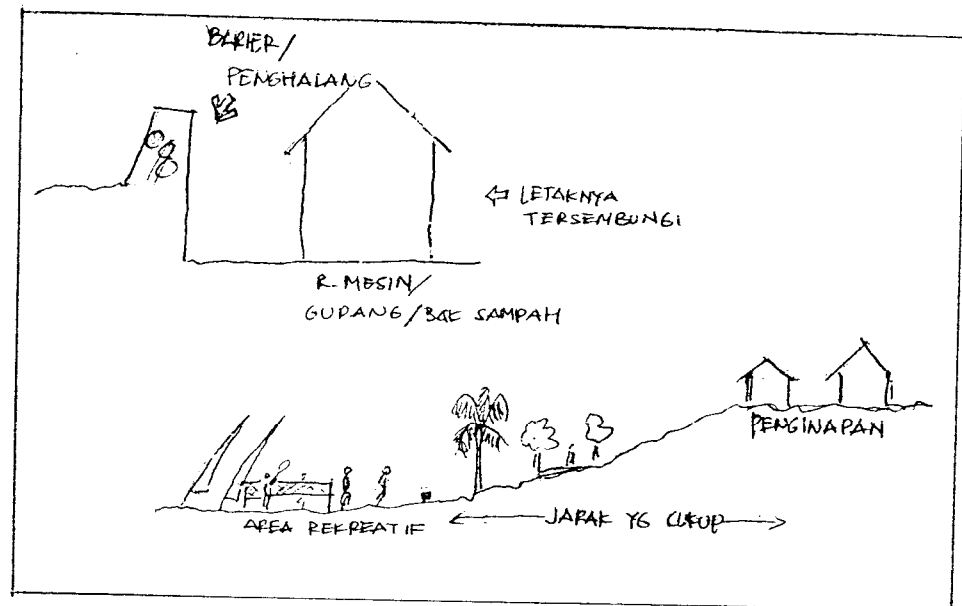 BARIER/
PENGHALANG
LETAKNYA
TERSEMBUNGI
R. MESIN/
GUDANG/BAK SAMPAH
PENGINAPAN
AREA REKREATIF
JARAK YG CUKUP